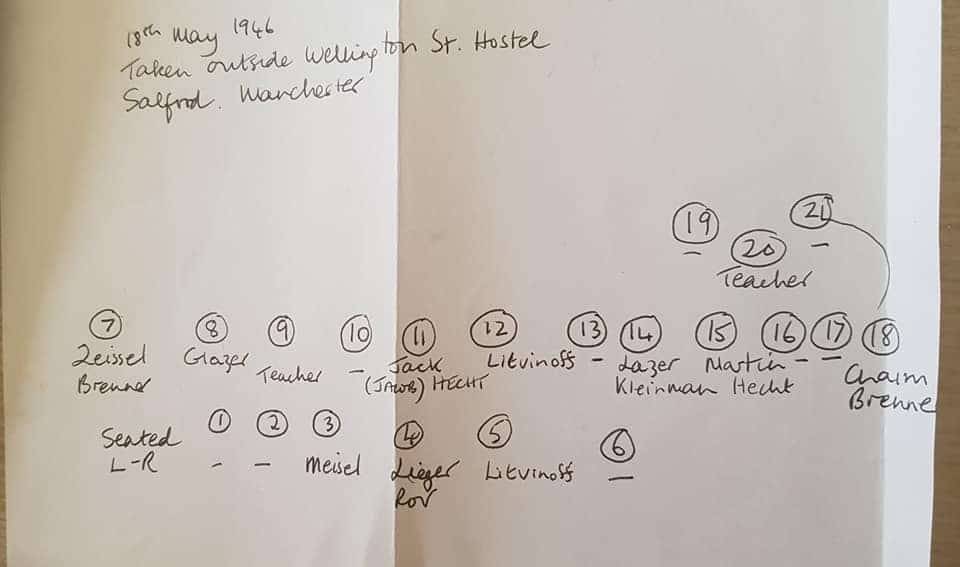 18th May 1946
Taken outside Wellington St. Hostel
Salford. Manchester
19 20 21
- Teacher -
7 8 9 10 11 12 13 14 15 16 17 18
Zeissel Glazer Teacher - Jack Litvinoff - Lazer Martin - - Chaim
Brenner (JACOB) HECHT Kleinman Hecht Brenner
Seated 1 2 3 4 5 6
L-R - - Meisel Lieger Litvinoff -
Rov